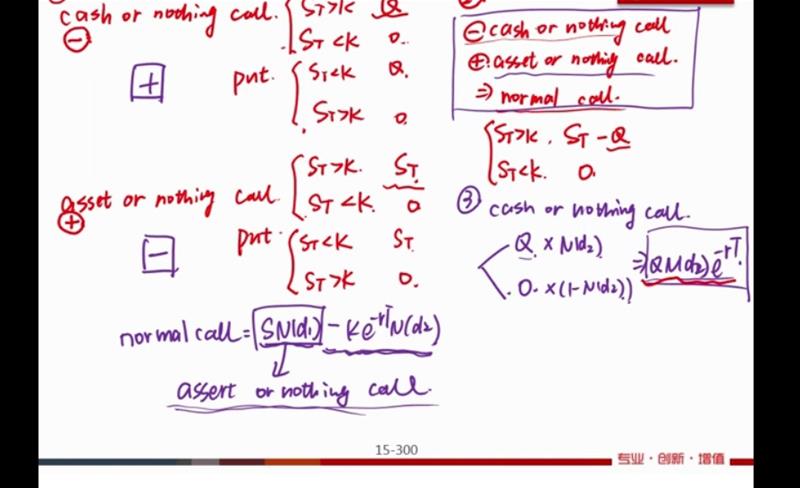 cash or nothing call. { ST>K Q
ST<K 0.
⊖
+ put. { ST<K Q.
ST>K 0
asset or nothing call { ST>K. ST
ST<K. 0
⊕
− put. { ST<K ST
ST>K 0.
normal call = SN(d1) - Ke^-rT N(d2)
assert or nothing call.
⊖ cash or nothing call
⊕ asset or nothing call.
⇒ normal call.
{ ST>K. ST-Q
ST<K. 0.
③ cash or nothing call.
Q × N(d2)
0. × (1-N(d2))
⇒ QN(d2)e^-rT.
15-300
专业·创新·增值